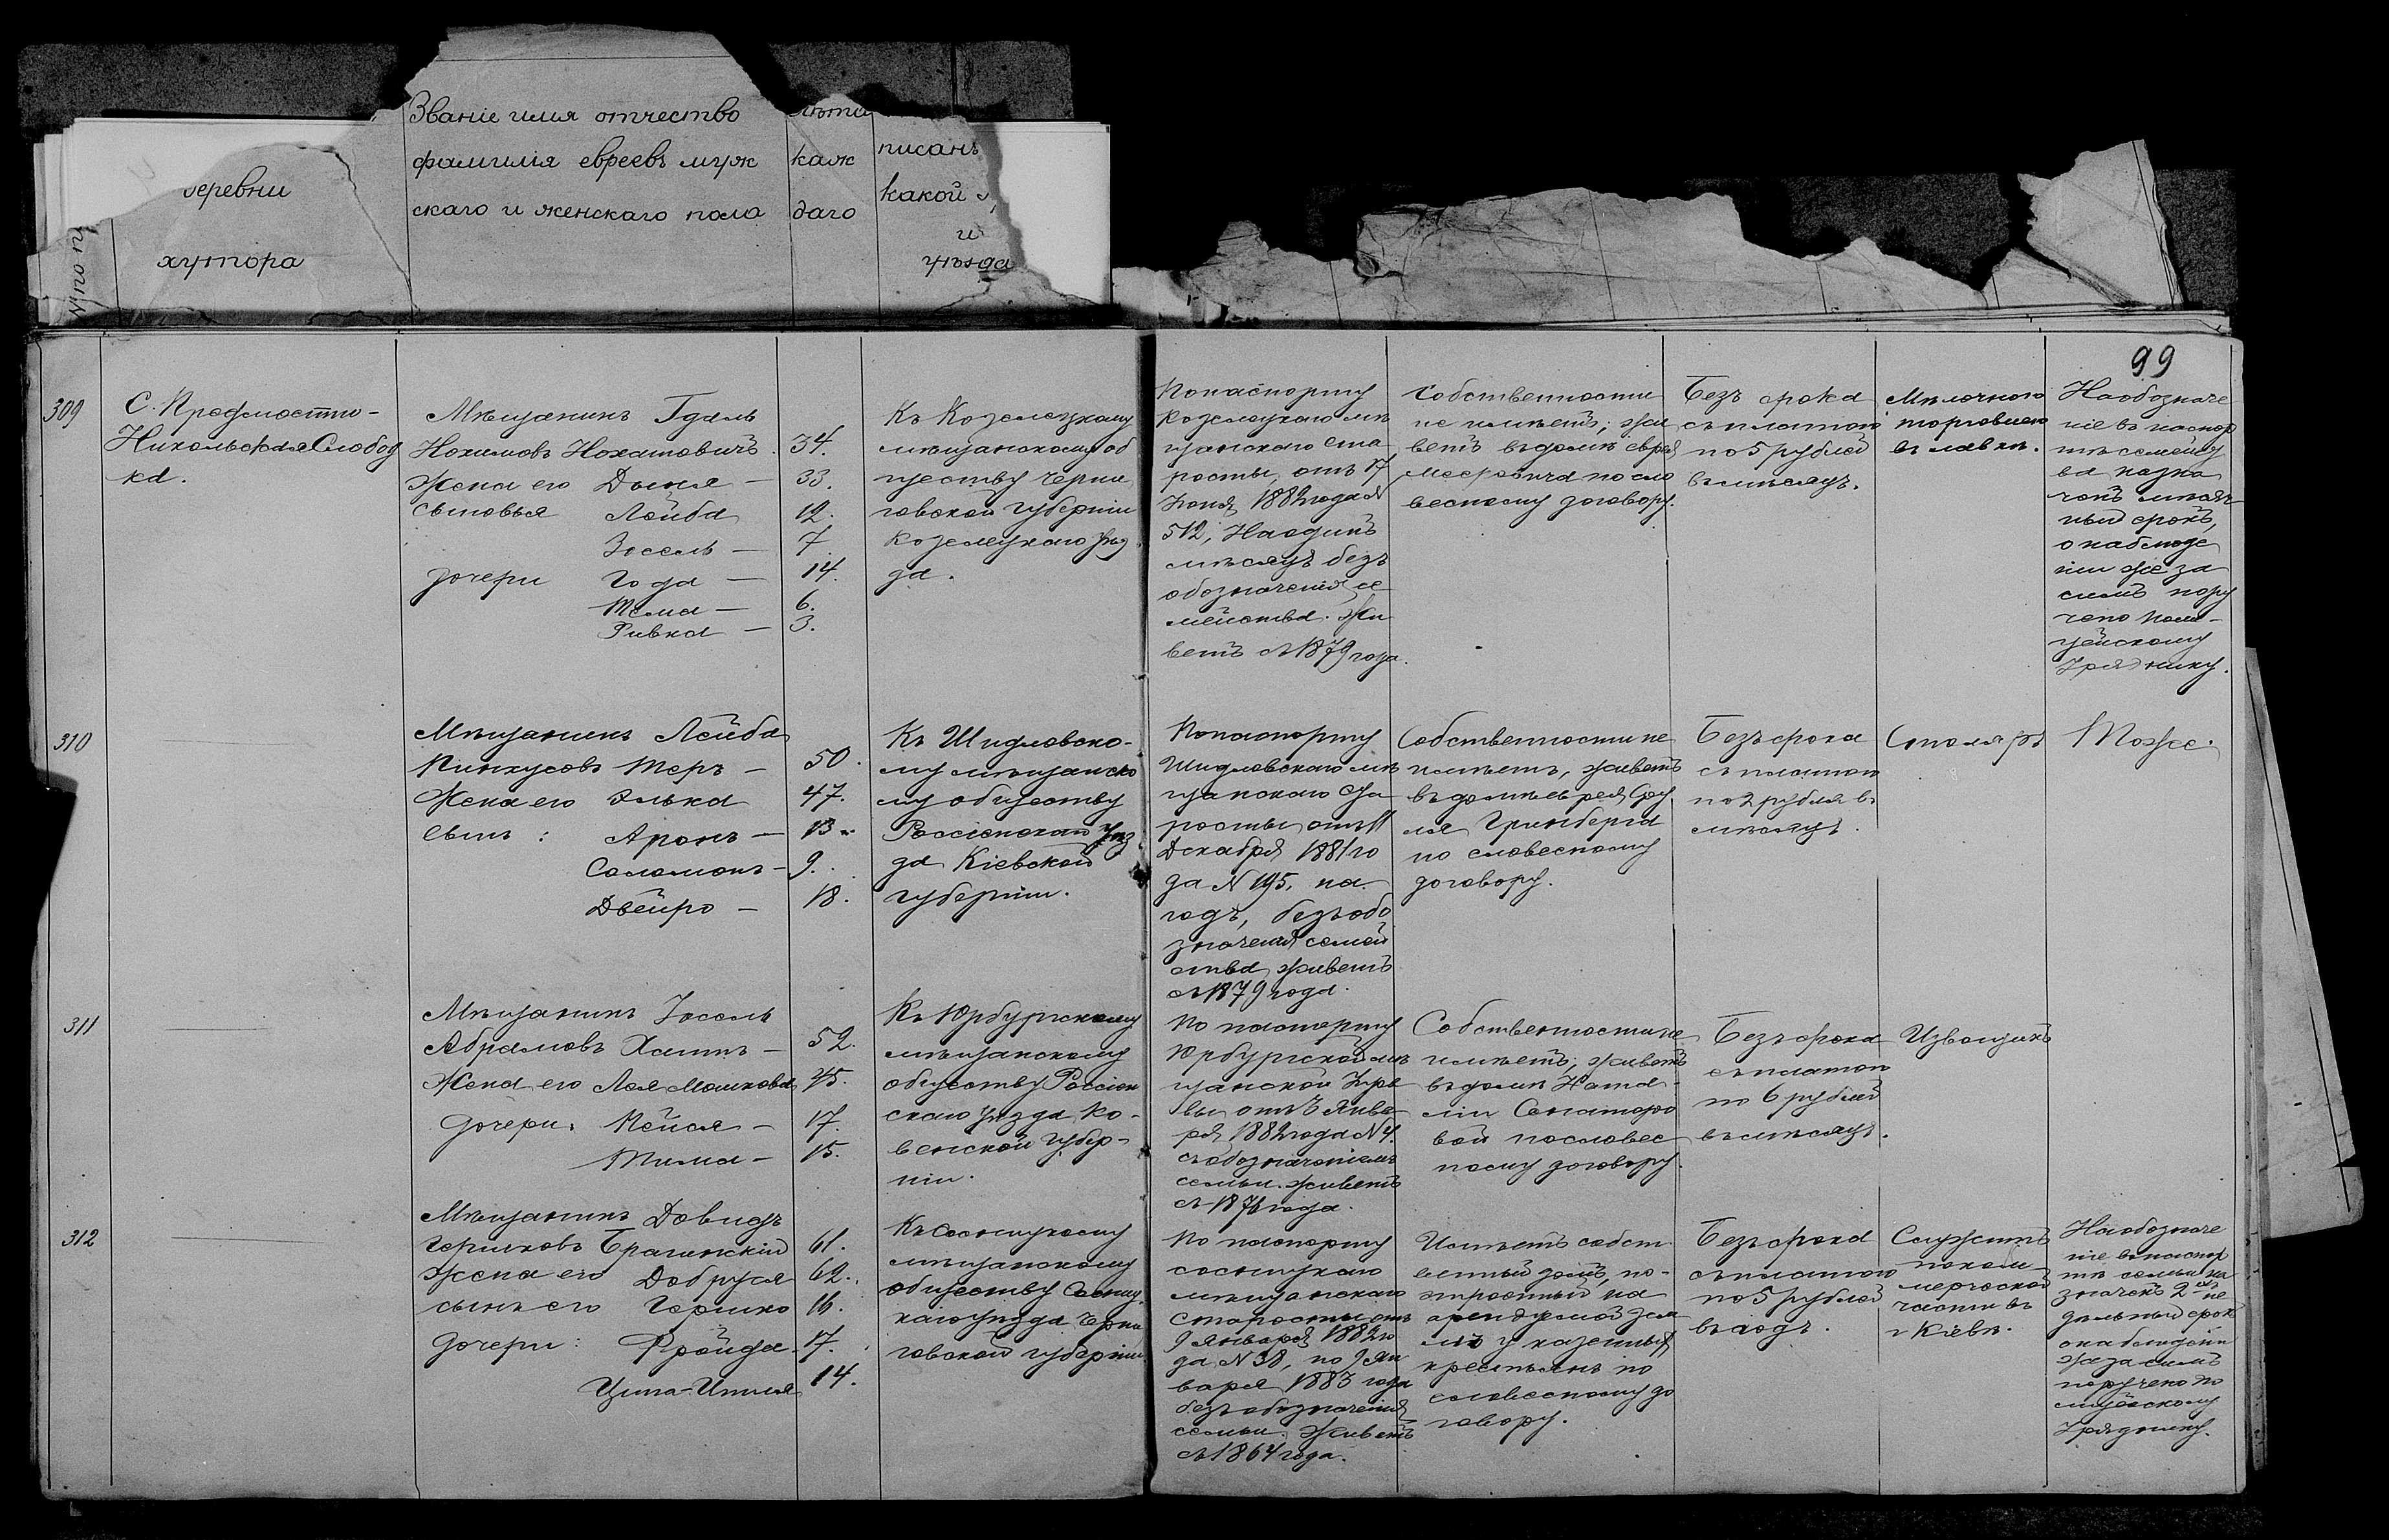 деревни
хутора
Званіе имя отчество
фамилія евреевъ муж
скаго и женскаго пола
лѣта
каж
даго
писанъ
какой
и
уѣзда
99
309
С. Предмостно-
Никольская Слобод
ка.
Мѣщанинъ Гдаль
Нохимовъ Нохатовичъ
Жена его Двося —
сыновья Лейба
Іосель —
дочери Года —
Тема —
Ривка —
34.
33.
12.
7
14.
6.
3.
Къ Козелецкому
мѣщанскому об
ществу Черни
говской губерніи
Козелецкаго Уѣз
да.
По паспорту
Козелецкаго мѣ
щанскаго Ста
росты, отъ 17
Іюня 1882 года N
512, На одинъ
мѣсяцъ безъ
обозначенія се
мейства. Жи
ветъ съ 1879 года.
Собственности
не имѣетъ; жи
ветъ въ домѣ еврея
по сло
весному договору.
Безъ срока
съ платою
по 5 рублей
въ мѣсяцъ.
Мѣлочною
торговлею
въ лавкѣ.
На обозначе
ніе въ паспор
тѣ семейст
ва назна
ченъ мѣсяч
ный срокъ,
о наблюде
ніи же за
симъ пору
чено Поли-
цейскому
Уряднику.
310
Мѣщанинъ Лейба
Пинхусовъ Теръ —
Жена его Элька
Сынъ: Аронъ —
Соломонъ —
Двейро —
50.
47.
13.
9.
18.
Къ Шидловско-
му мѣщанско
му обществу
Россіенскаго Уѣз
да Кіевской
губерніи.
По паспорту
Шидловскаго мѣ
щанскаго Ста
росты отъ 11
Декабря 1881 го
да N 195, на
годъ, безъ обо
значенія семей
ства, живетъ
съ 1879 года.
Собственности не
имѣетъ, живетъ
въ домѣ еврея Сру
ля Гринберга
по словесному
договору.
Безъ срока
съ платою
по 2 рубля въ
мѣсяцъ.
Столяръ
Тоже.
311
Мѣщанинъ Іосель
Абрамовъ Хаитъ —
Жена его Лея Мошкова
Дочери: Пейся —
Тима —
52.
45.
17.
15.
Къ Юрбургскому
мѣщанскому
обществу Россіен
скаго Уѣзда Ко-
венской Губер-
ніи.
По паспорту
Юрбургской мѣ
щанской Упра
вы отъ Янва
ря 1882 года N 4.
съ обозначеніемъ
семьи. живетъ
съ 1871 года.
Собственности не
имѣетъ; живетъ
въ домѣ Ната-
ліи Сенаторо
вой по словес
ному договору.
Безъ срока
съ платою
по 6 рублей
въ мѣсяцъ.
Извощикъ
312
Мѣщанинъ Довидъ
Гершковъ Брагинскій
Жена его Добруся
сынъ его Гершко
Дочери: Фрейда
Ципа-Итля
61.
62.
16.
17.
14.
Къ Сосницкому
мѣщанскому
обществу Сосниц
каго Уѣзда Черни
говской губерніи
По паспорту
сосницкаго
мѣщанскаго
Старосты отъ
9 Января 1882 го
да N 38, по 9 Ян
варя 1883 года
безъ обозначенія
семьи. Живетъ
съ 1864 года.
Имѣетъ собст
венный домъ, по-
строенный на
арендуемой зем
лѣ у казенныхъ
крестьянъ по
словесному до
говору.
Безъ срока
съ платою
по 5 рублей
въ годъ.
Служитъ
по ком-
мерческой
части въ
г. Кіевѣ.
На обозначе
ніе въ паспор
тѣ семьи на
значенъ 2хъ не
дѣльный срокъ
о наблюденіи
же за симъ
поручено По
лицейскому
Уряднику.